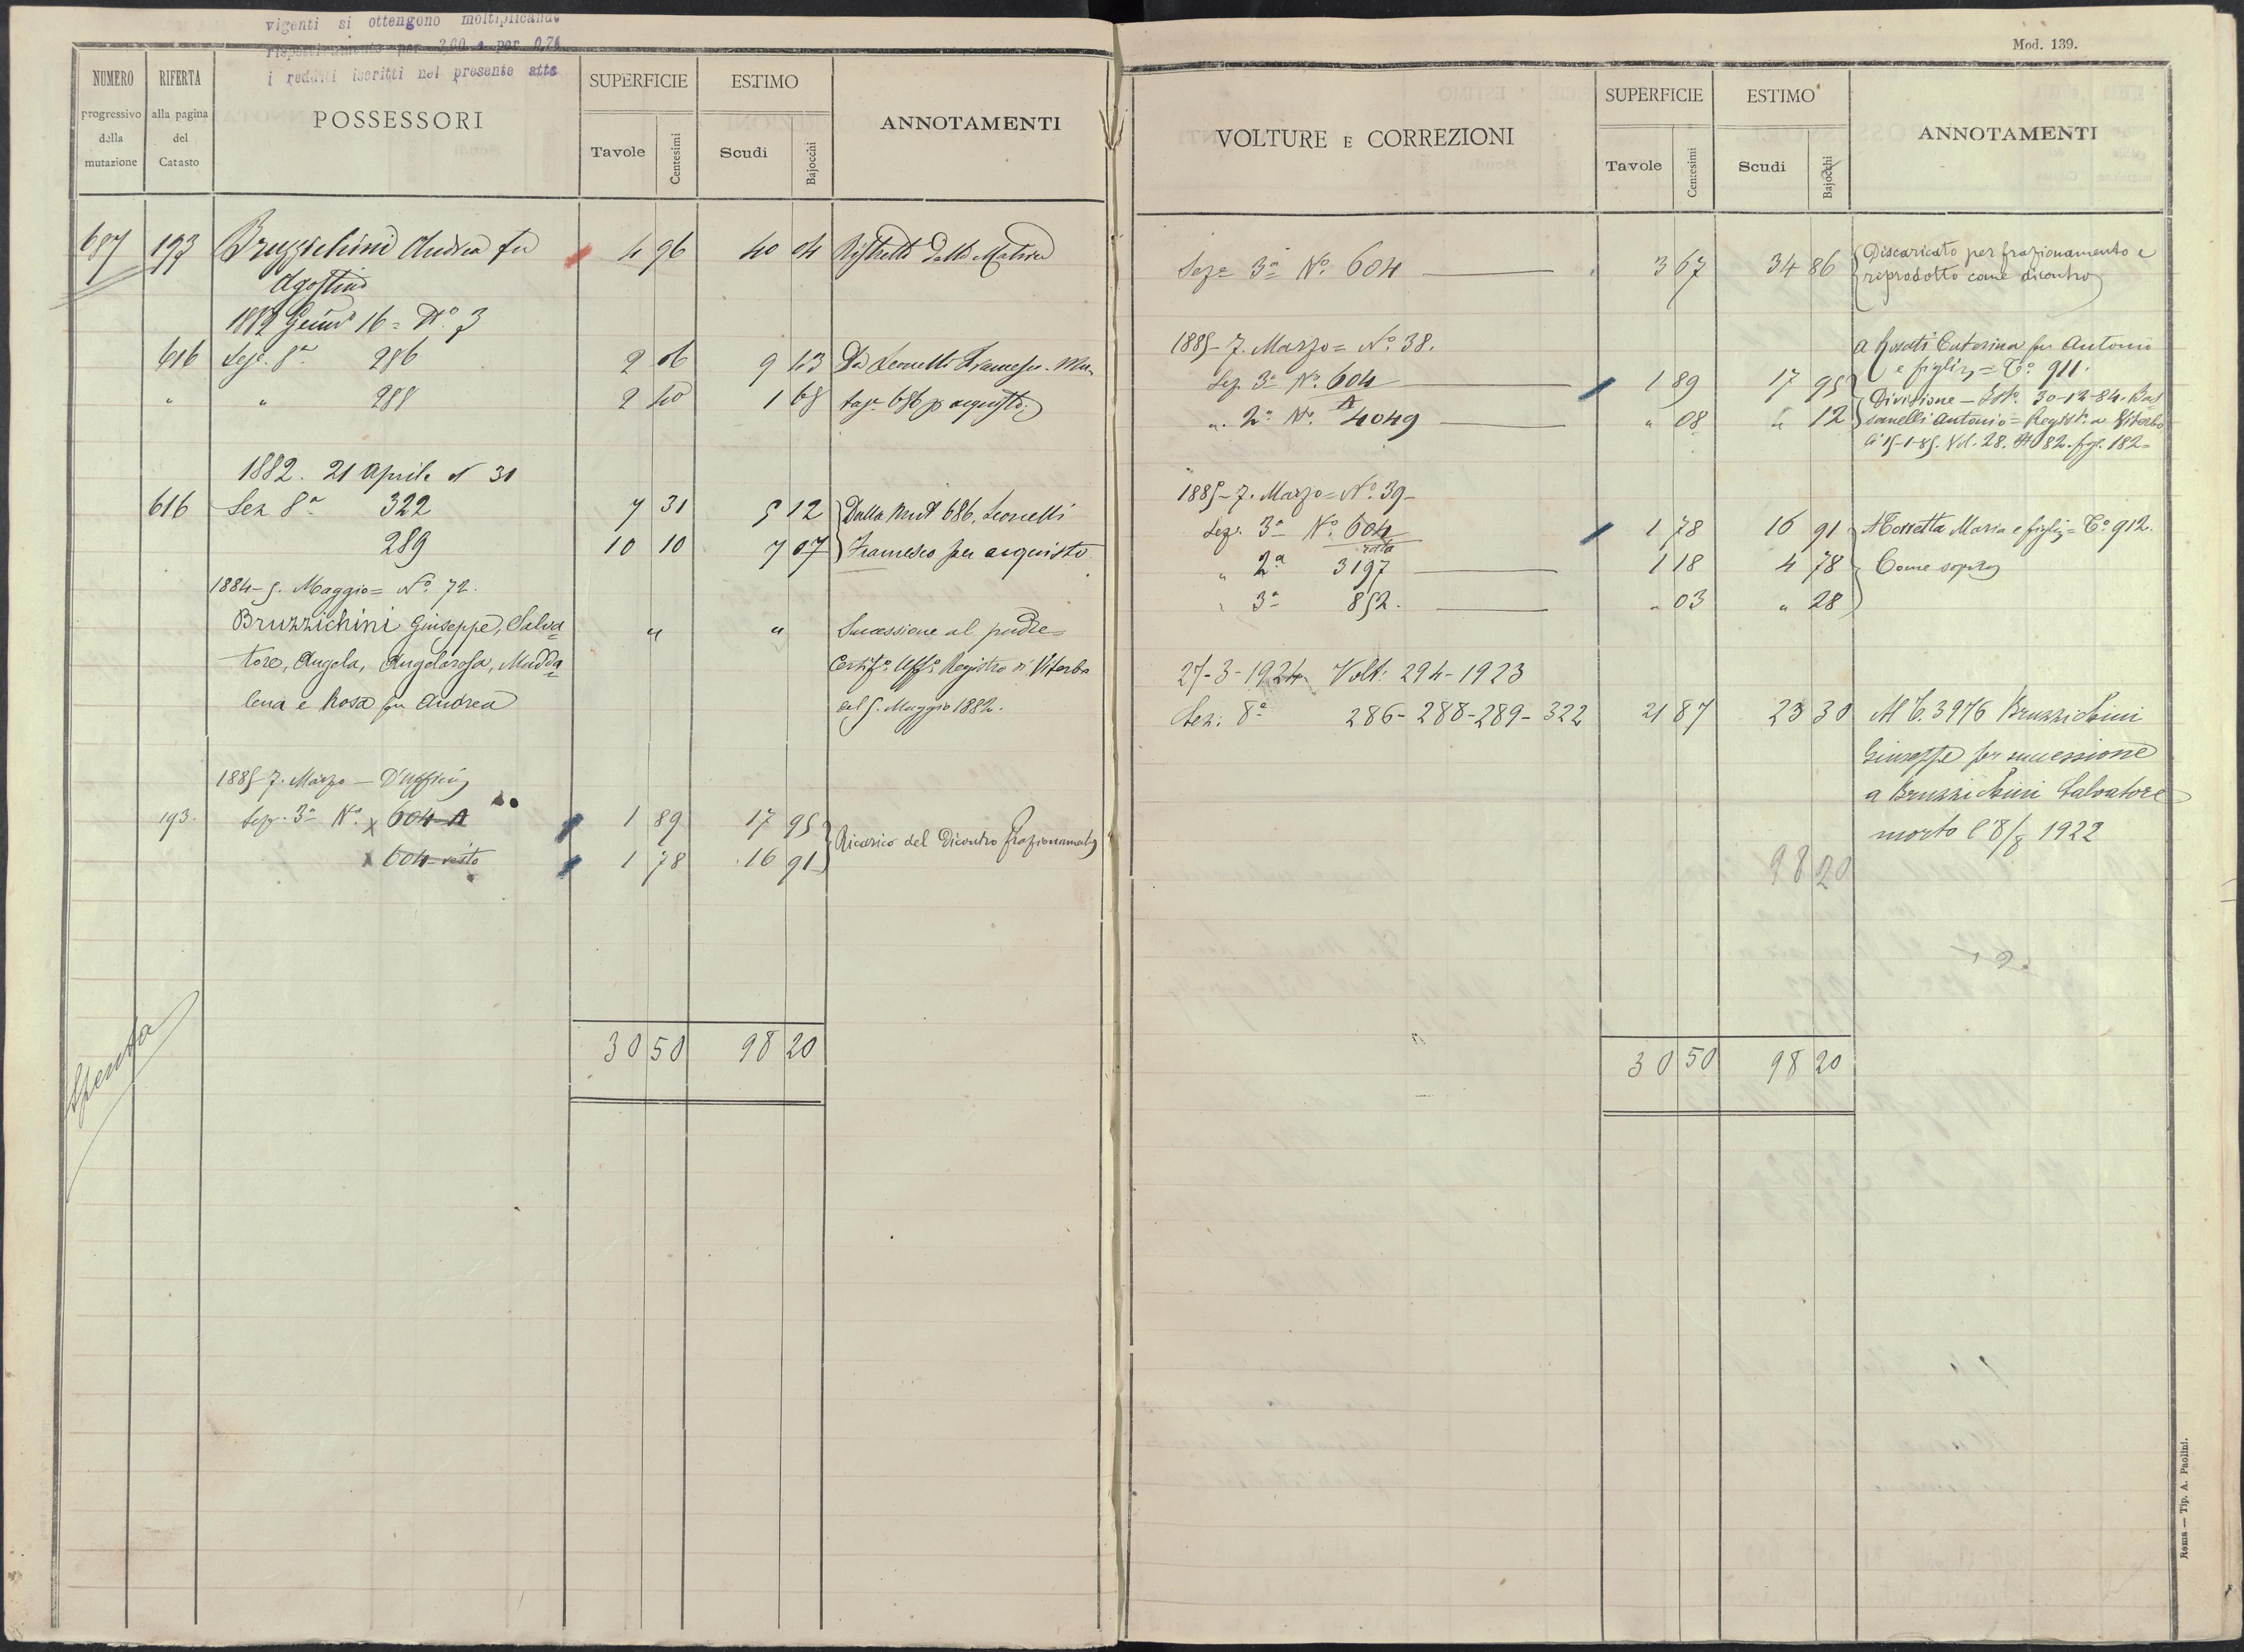 vigenti si ottengono moltiplicando
rispettivamente per 3,60 e per 0,74
i redditi iscritti nel presente atto
NUMERO
progressivo
della
mutazione
RIFERTA
alla pagina
del
Catasto
POSSESSORI
SUPERFICIE
Tavole
Centesimi
ESTIMO
Scudi
Bajocchi
ANNOTAMENTI
687 193 Bruzzichini Andrea fu 4 96 40 04 Ristretto dalla Matrice
Agostino
1882 16 = N.º 3
616 Sez. 8ª 286 2 06 9 43 Da Leonelli Francesco. Mu-
" " 288 2 40 1 68 taz.e 686 p acquisto
1882. 21 Aprile N 31
616 Sez 8ª 322 7 31 5 12 Dalla Mut 686, Leonelli
289 10 10 7 07 Francesco per acquisto
1884-5. Maggio = Nº. 72.
Bruzzichini Giuseppe, Salva " " Successione al padre=
tore, Angela, Angelarosa, Madda Certif.º Uff.º Registro di Viterbo
lena e Rosa fu Andrea del 5. Maggio 1882.
1885-7. Marzo — D'Ufficio
193. Sez. 3ª Nº. x 604-A 1 89 17 95 Ricarico del dicontro frazionamento
x 604 resto 1 78 16 91
30 50 98 20
Spenta
Mod. 139.
VOLTURE E CORREZIONI
SUPERFICIE
Tavole
Centesimi
ESTIMO
Scudi
Bajocchi
ANNOTAMENTI
Sez.e 3ª Nº. 604 3 67 34 86 Discaricato per frazionamento e
riprodotto come dicontro
1885-7. Marzo = Nº. 38. a Rosati Caterina fu Antonio
e figli = Cº. 911.
Sez. 3ª Nº. 604 1 89 17 95 Divisione — Ist.º 30-12-84. Bas
A
" 2ª Nº. 4049 " 08 " 12 sanelli Antonio = Regist.º a Viterbo
li 15-1-85. Vol. 28. Nº 82. fog. 182=
1885-7. Marzo = Nº. 39-
Sez. 3ª Nº. 604 1 78 16 91 A Corsetta Maria e figli = Cº. 912.
rata
" 2ª 3197 1 18 4 78 Come sopra
" 3ª 852. " 03 " 28
27-3-1924 Volt: 294-1923
Sez: 8ª 286-288-289-322 21 87 23 30 Al C. 3976 Bruzzichini
Giuseppe per successione
a Bruzzichini Salvatore
morto l'8/8 1922
98 20
30 50 98 20
Roma — Tip. A. Paolini.